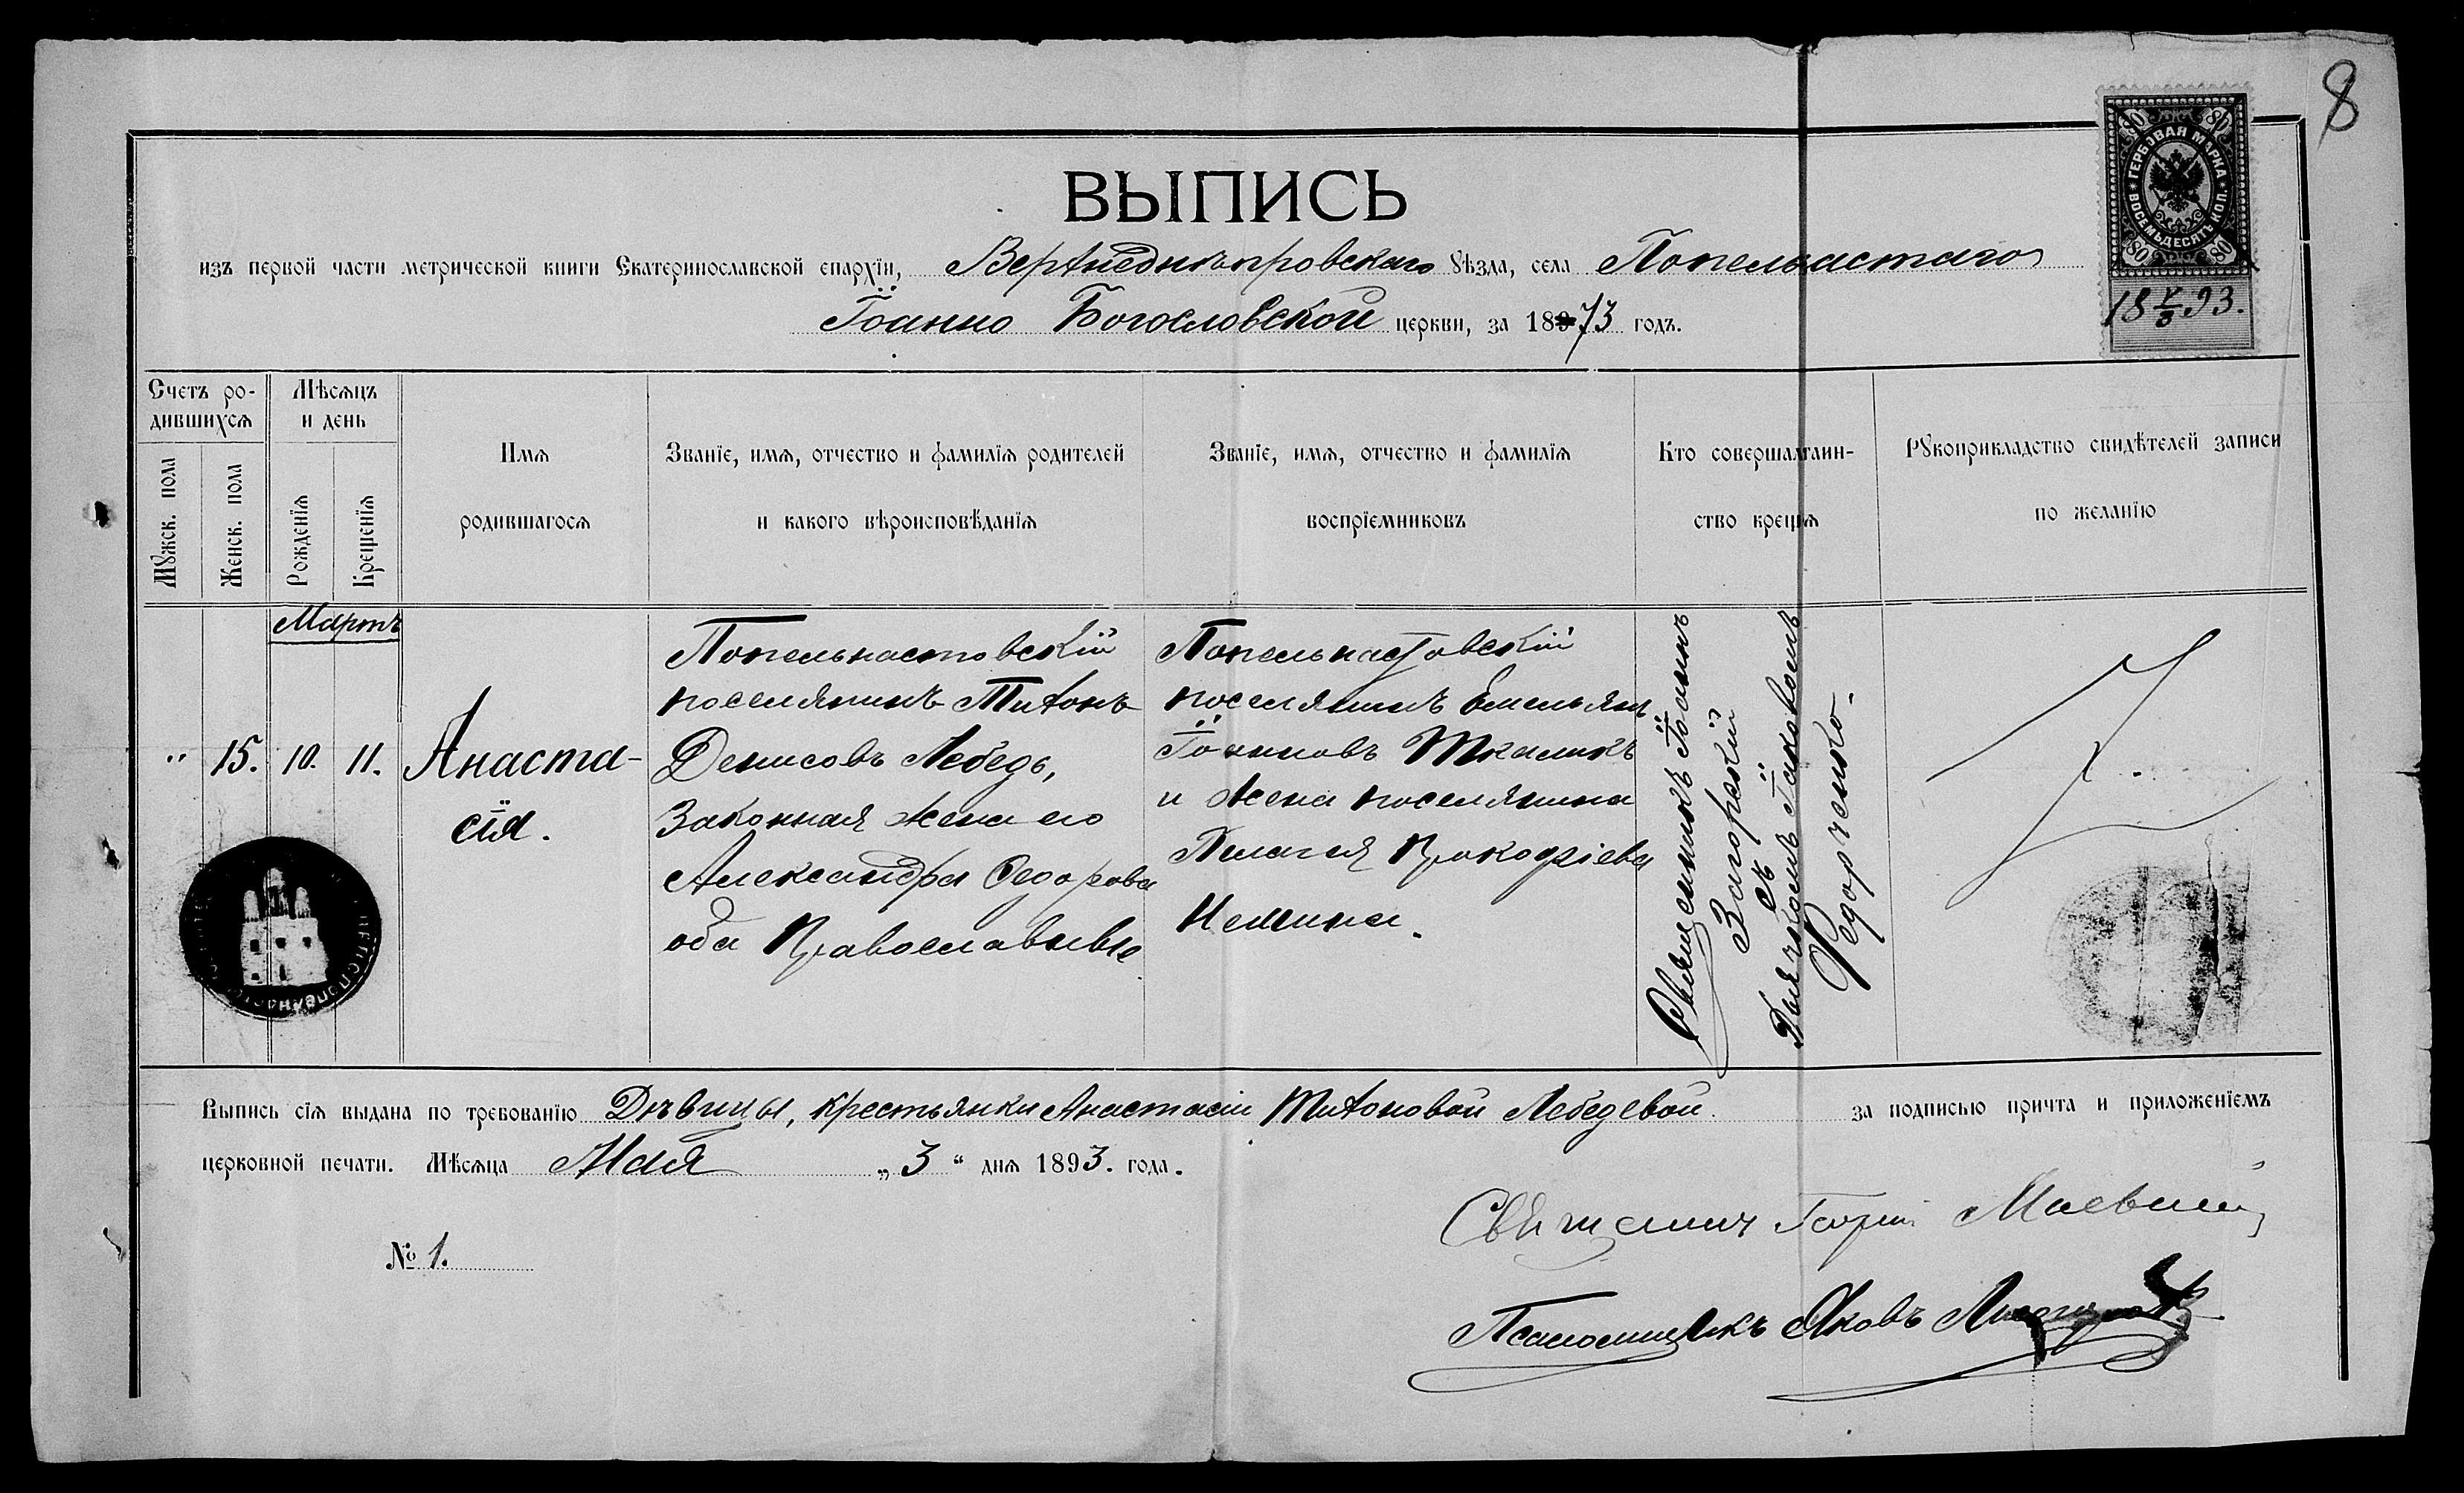 8
ГЕРБОВАЯ МАРКА
ВОСЕМЬДЕСЯТЪ КОП.
80 80
80 80
18 V/3 93.
ВЫПИСЬ
изъ первой части метрической книги Екатеринославской епархіи, Верхнеднѣпровскаго уѣзда, села Попельнастаго
Іоанно Богословской церкви, за 1873 годъ.
Счетъ ро-
дившихся
Мужск. пола
Женск. пола
Мѣсяцъ
и день
Рожденія
Крещенія
Имя
родившагося
Званіе, имя, отчество и фамилія родителей
и какого вѣроисповѣданія
Званіе, имя, отчество и фамилія
воспріемниковъ
Кто совершалъ таин-
ство крещ
Рукоприкладство свидѣтелей записи
по желанію
Мартъ
" 15. 10. 11.
Анаста-
сія.
Попельнастовскій
поселянинъ Тихонъ
Денисовъ Лебедь,
законная жена его
Александра Федорова
оба Православные
Попельнастовскій
поселянинъ Емельянъ
Іоанновъ Ткаликъ
и жена поселянина
Пелагея Прокофіева
Священникъ Іоаннъ
Загорскій
съ
Дьячкомъ Іаковомъ
Федорченко.
Выпись сія выдана по требованію Дѣвицы, крестьянки Анастасіи Тихоновой Лебедевой за подписью причта и приложеніемъ
церковной печати. Мѣсяца Мая „ 3 “ дня 1893. года.
№ 1.
Священникъ Георгій Маевскій
Псаломщикъ Яковъ